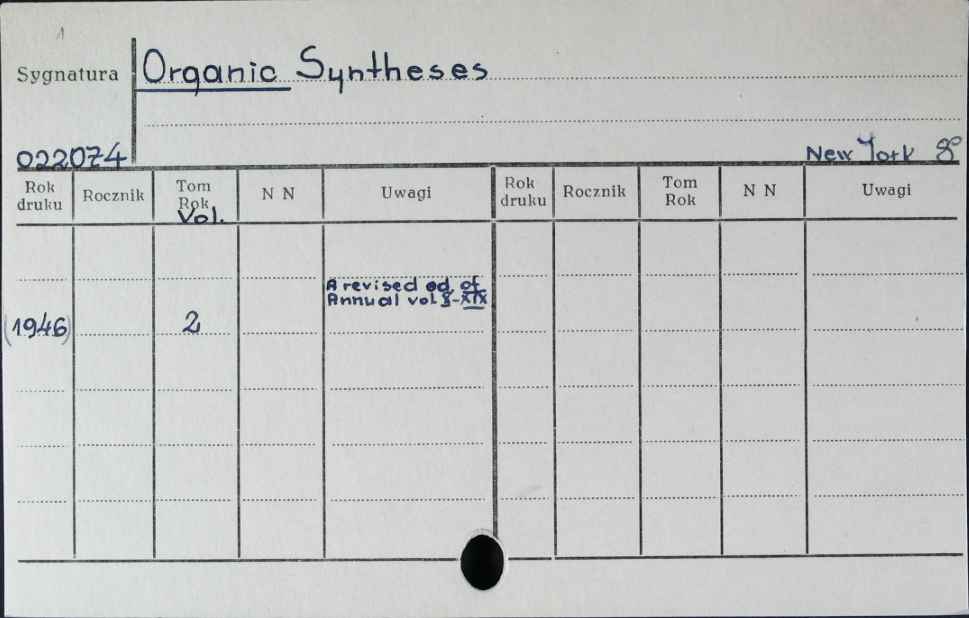 1
Sygnatura Organic Syntheses
022074 New York 8°
Rok druku Rocznik Tom Rok Vol. N N Uwagi Rok druku Rocznik Tom Rok N N Uwagi
A revised ed. of
Annual vol. X-XIX
(1946) 2